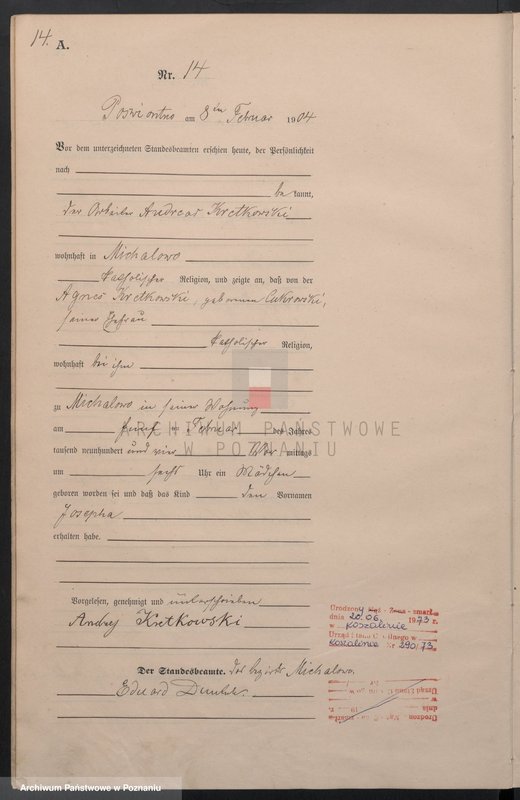 14.
A.
Nr. 14
am 8ten Februar 1904
Vor dem unterzeichneten Standesbeamten erschien heute, der Persönlichkeit
nach
be kannt,
der Arbeiter Andreas Kretkowski
wohnhaft in Michalowo
katholischer Religion, und zeigte an, daß von der
Agnes Kretkowski, geborenen Cukrowski,
seiner Ehefrau
katholischer Religion,
wohnhaft bei ihm
zu Michalowo in seiner Wohnung
am fünften Februar des Jahres
tausend neunhundert und vier Vor mittags
um sechs Uhr ein Mädchen
geboren worden sei und daß das Kind den Vornamen
Josepha
erhalten habe.
Vorgelesen, genehmigt und unterschrieben
Andrzej Kretkowski
Der Standesbeamte. Des Bezirks Michalowo.
Eduard
ARCHIWUM PAŃSTWOWE
W POZNANIU
dnia 20.06. 1973 r.
w Koszalinie
Urząd Stanu Cywilnego w
Koszalinie Nr 290/73
Archiwum Państwowe w Poznaniu